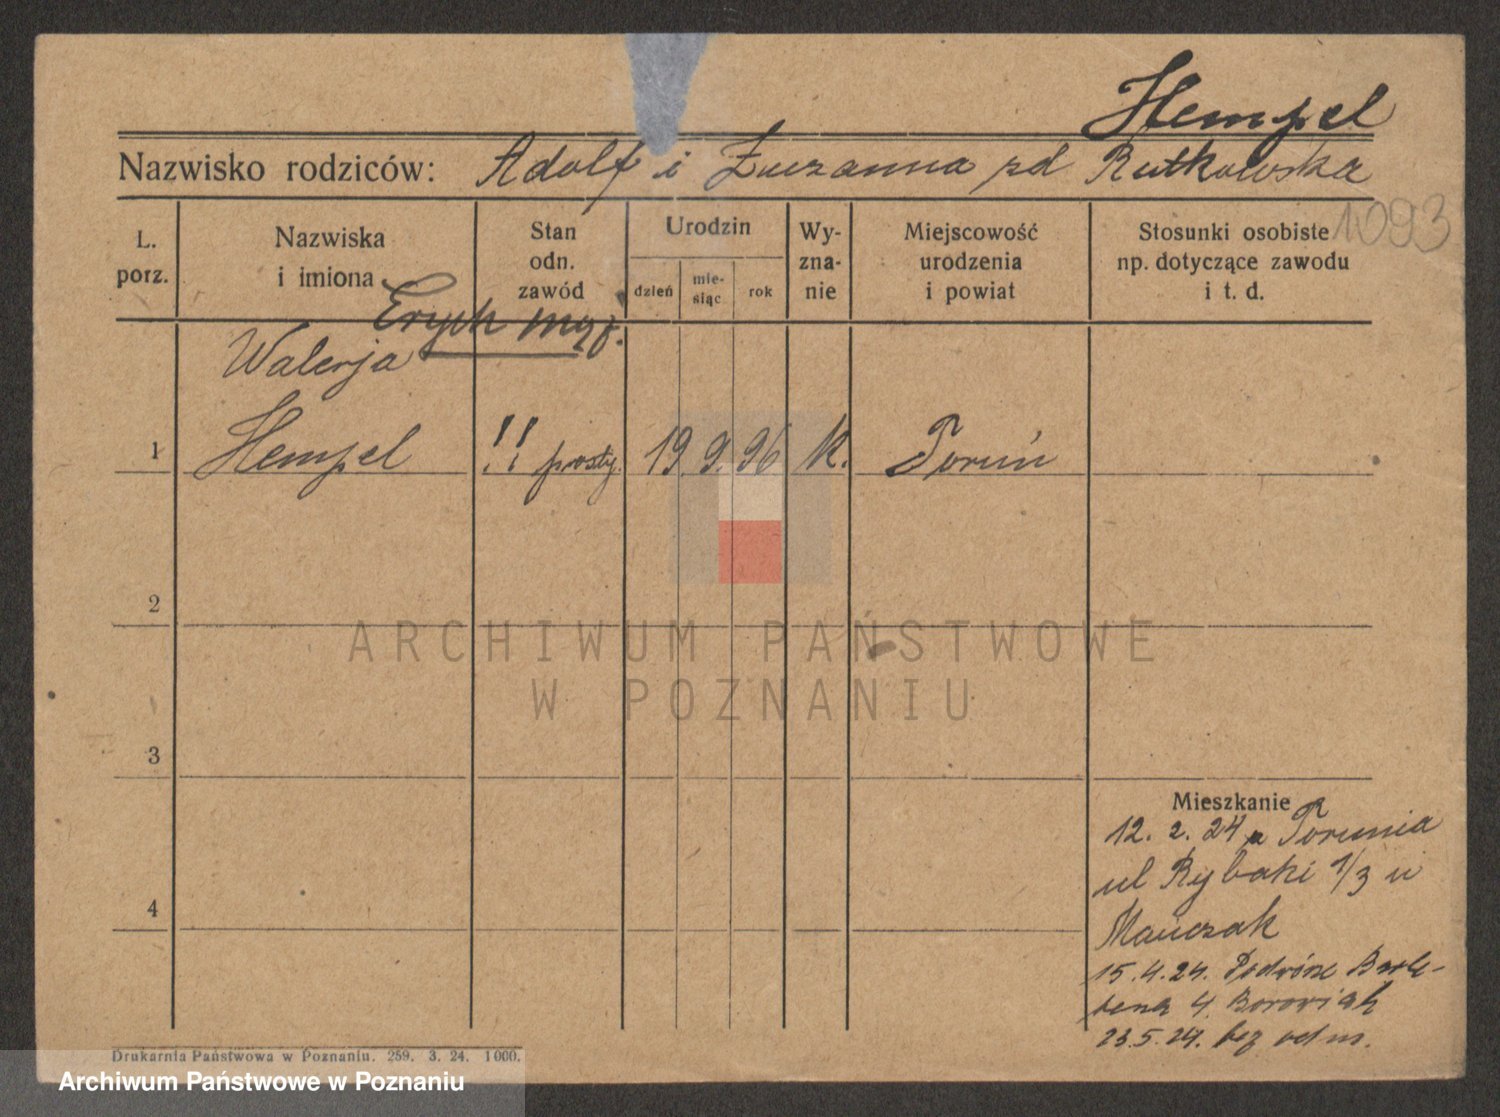 Hempel
Nazwisko rodziców: Adolf i Zuzanna zd Rutkowska
1093
L. porz.
Nazwiska i imiona
Stan odn. zawód
Urodzin
dzień
mie-siąc
rok
Wy-zna-nie
Miejscowość urodzenia i powiat
Stosunki osobiste np. dotyczące zawodu i t. d.
Erych mąż.
Walerja
1 Hempel !! prosty. 19 9. 96 k. Toruń
2
ARCHIWUM PAŃSTWOWE
W POZNANIU
3
4
Mieszkanie
12. 2. 24 z Torunia
ul Rybaki 1/3 u
Mańczak
15.4.24.
4. Borowiak
23.5.24. bez odm.
Drukarnia Państwowa w Poznaniu. 259. 3. 24. 1000.
Archiwum Państwowe w Poznaniu